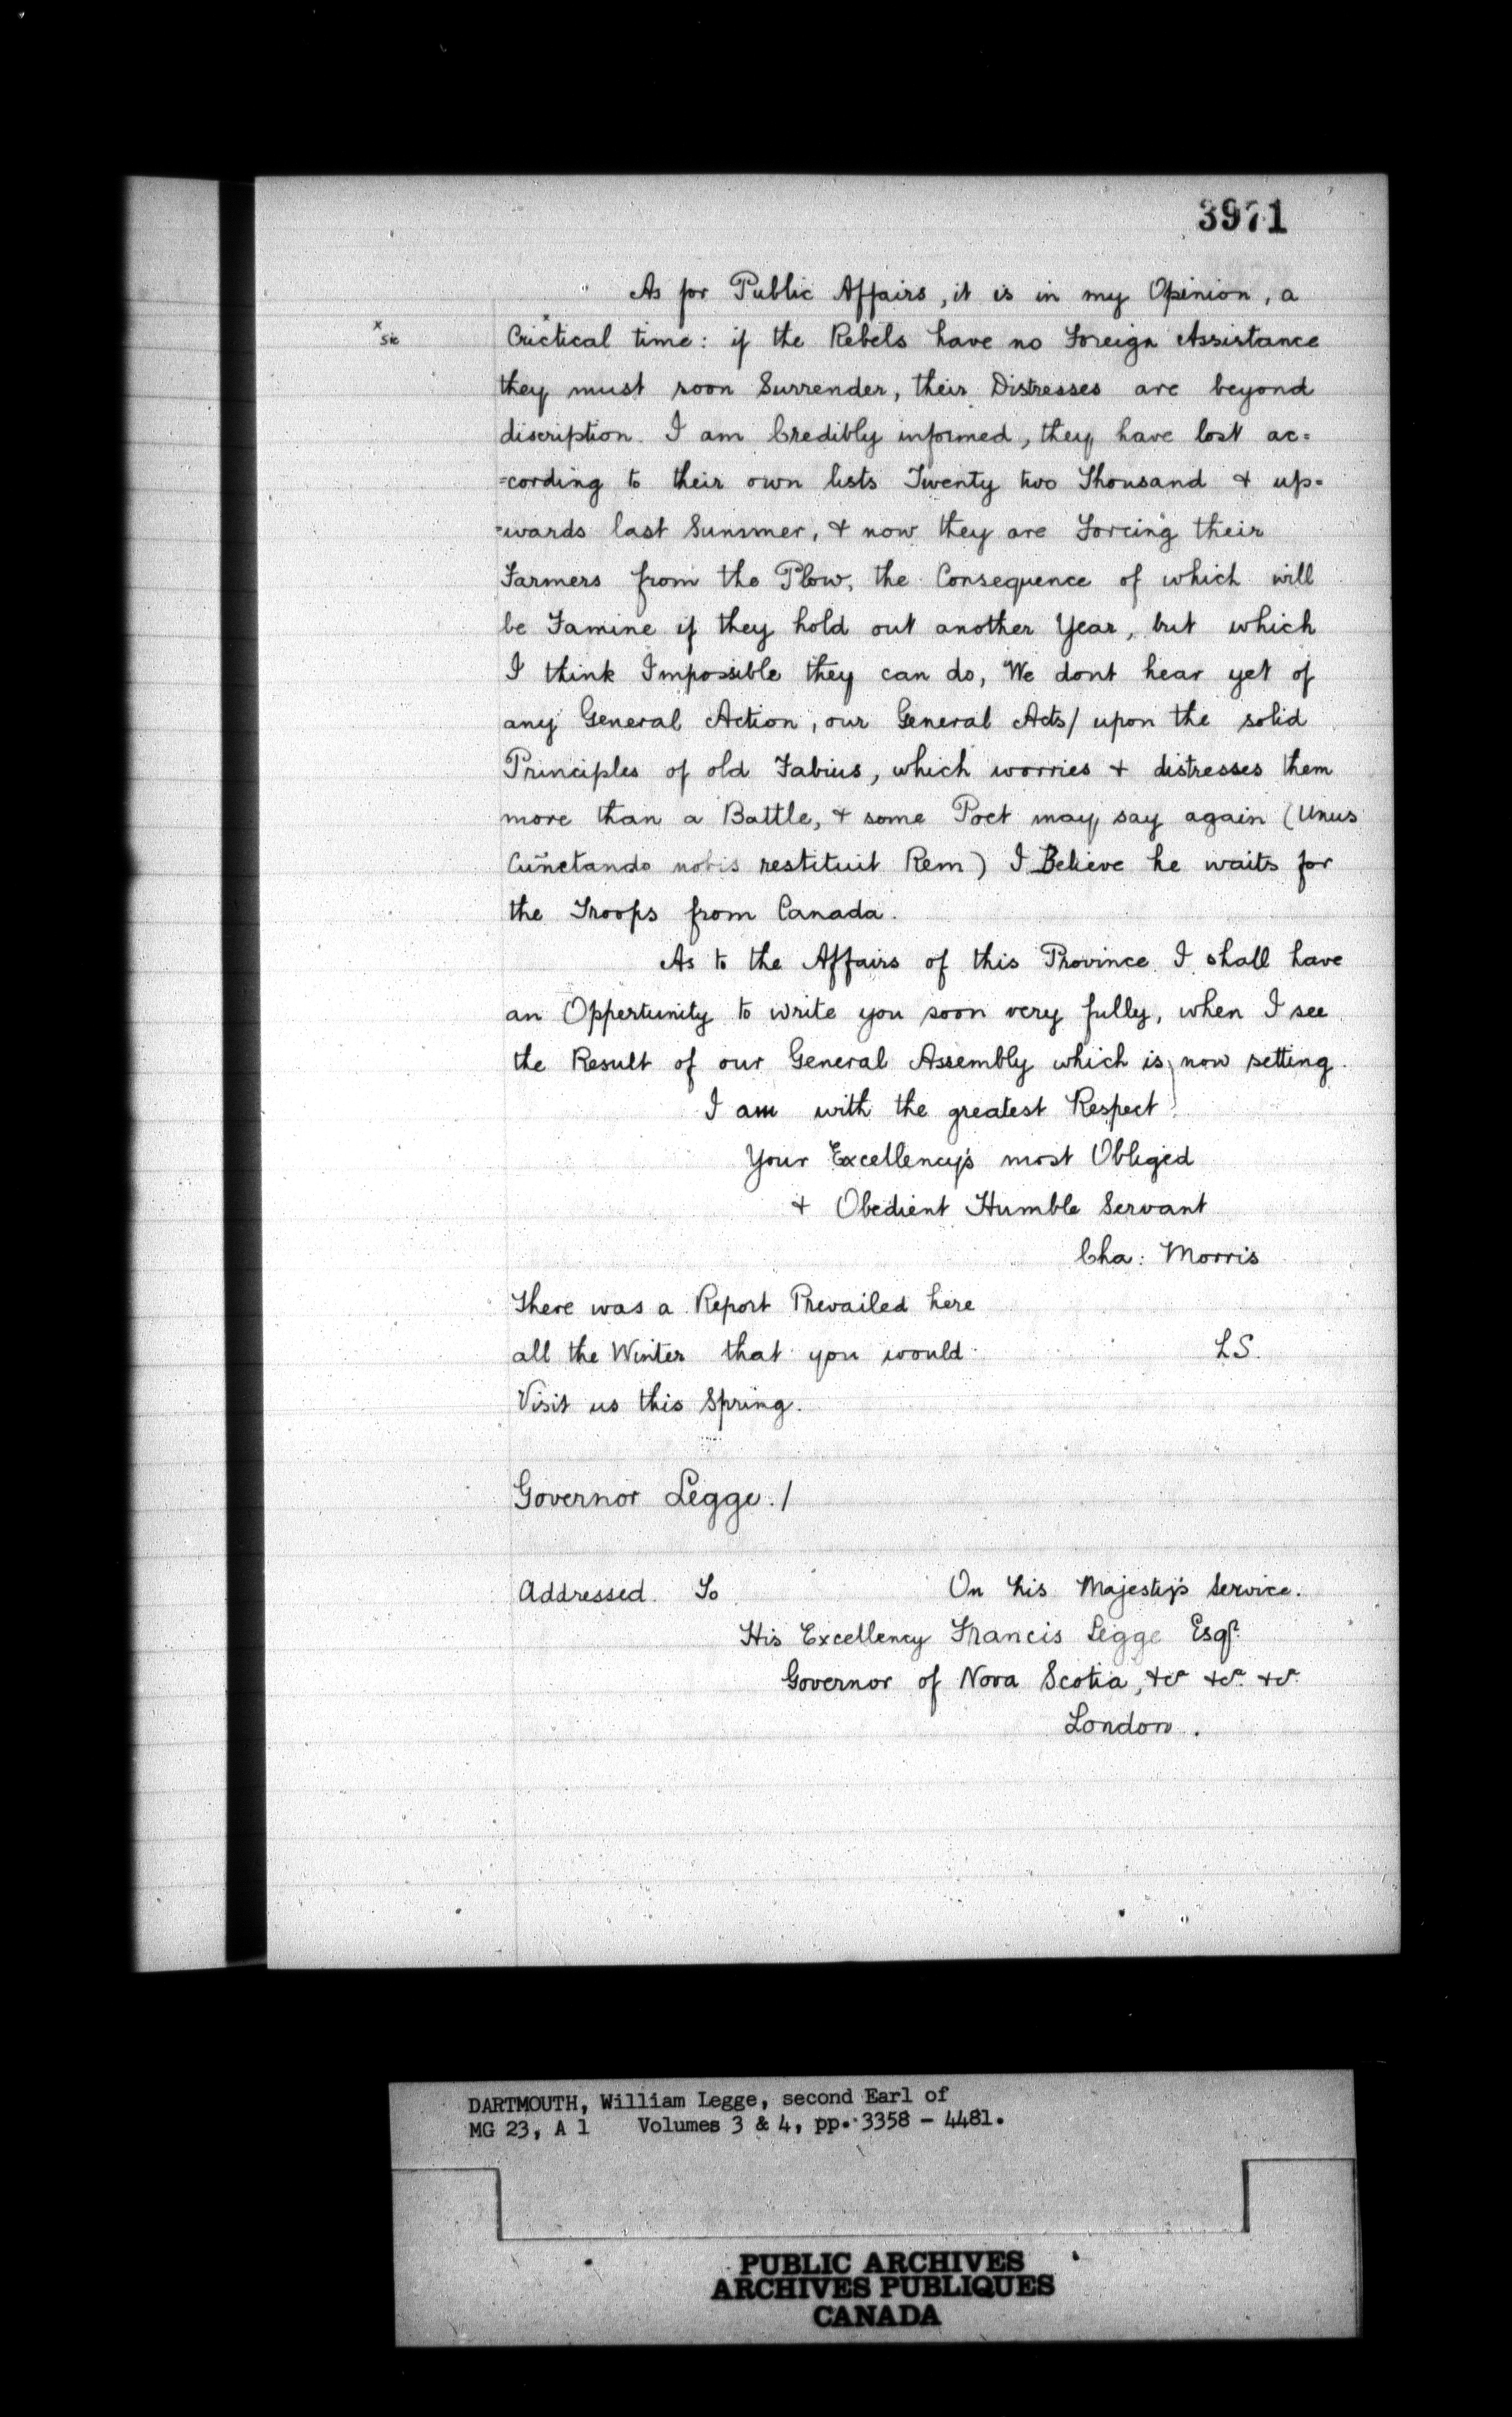 3971
As for Public Affairs, it is in my Opinion, a
x sic
Crictical x time: if the Rebels have no Foreign Assistance
they must soon Surrender, their Distresses are beyond
discription. I am Credibly informed, they have lost ac=
=cording to their own lists Twenty two Thousand & up=
=wards last Summer, & now they are Forcing their
Farmers from the Plow, the Consequence of which will
be Famine if they hold out another Year, but which
I think Impossible they can do, We dont hear yet of
any General Action, our General Acts/ upon the solid
Principles of old Fabius, which worries & distresses them
more than a Battle, & some Poet may say again (Unus
Cunctando nobis restituit Rem) I Believe he waits for
the Troops from Canada.
As to the Affairs of this Province I shall have
an Oppertunity to write you soon very fully, when I see
the Result of our General Assembly which is now setting.
I am with the greatest Respect
Your Excellency's most Obliged
& Obedient Humble Servant
Cha: Morris
There was a Report Prevailed here
all the Winter that you would
L.S.
Visit us this Spring.
Governor Legge./
Addressed. To On his Majesty's Service.
His Excellency Francis Legge Esqr.
Governor of Nova Scotia, &ca &ca. &ca.
London.
DARTMOUTH, William Legge, second Earl of
MG 23, A 1 Volumes 3 & 4, pp. 3358 - 4481.
PUBLIC ARCHIVES
ARCHIVES PUBLIQUES
CANADA